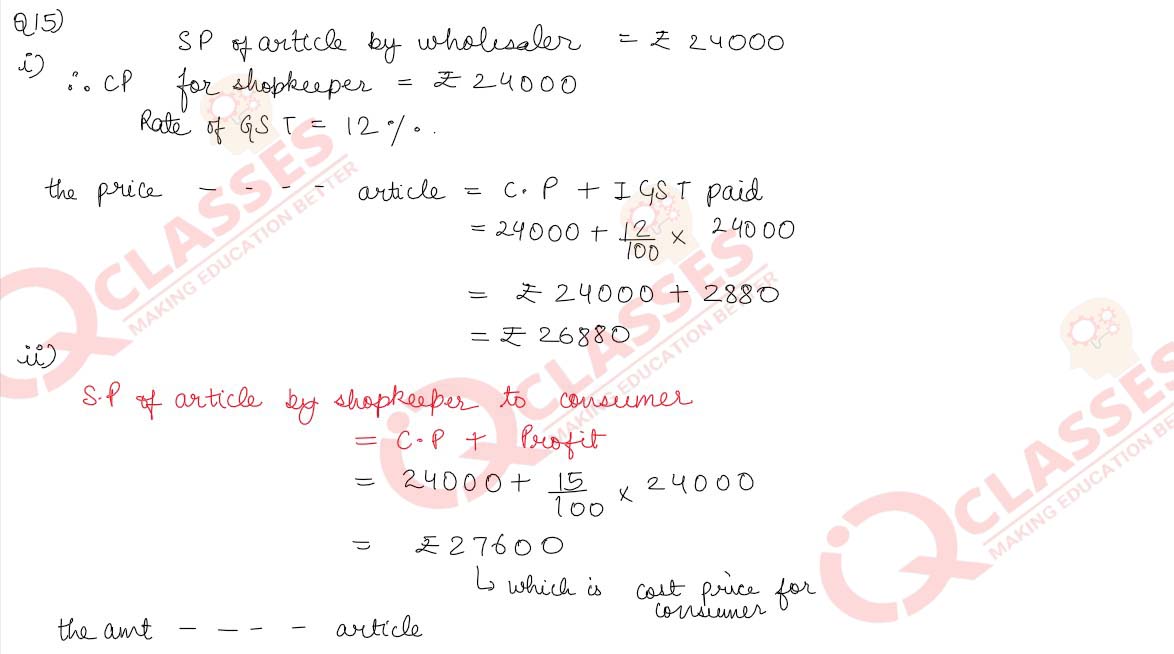 Q15)
SP of article by wholesaler = ₹ 24000
i)
∴ CP for shopkeeper = ₹ 24000
Rate of GST = 12 %.
the price - - - - article = C.P + IGST paid
= 24000 + 12/100 × 24000
= ₹ 24000 + 2880
= ₹ 26880
ii)
S.P of article by shopkeeper to consumer
= C.P + Profit
= 24000 + 15/100 × 24000
= ₹ 27600
↳ which is cost price for
consumer
the amt - - - - article
IQ CLASSES
MAKING EDUCATION BETTER
IQ CLASSES
MAKING EDUCATION BETTER
IQ CLASSES
MAKING EDUCATION BETTER